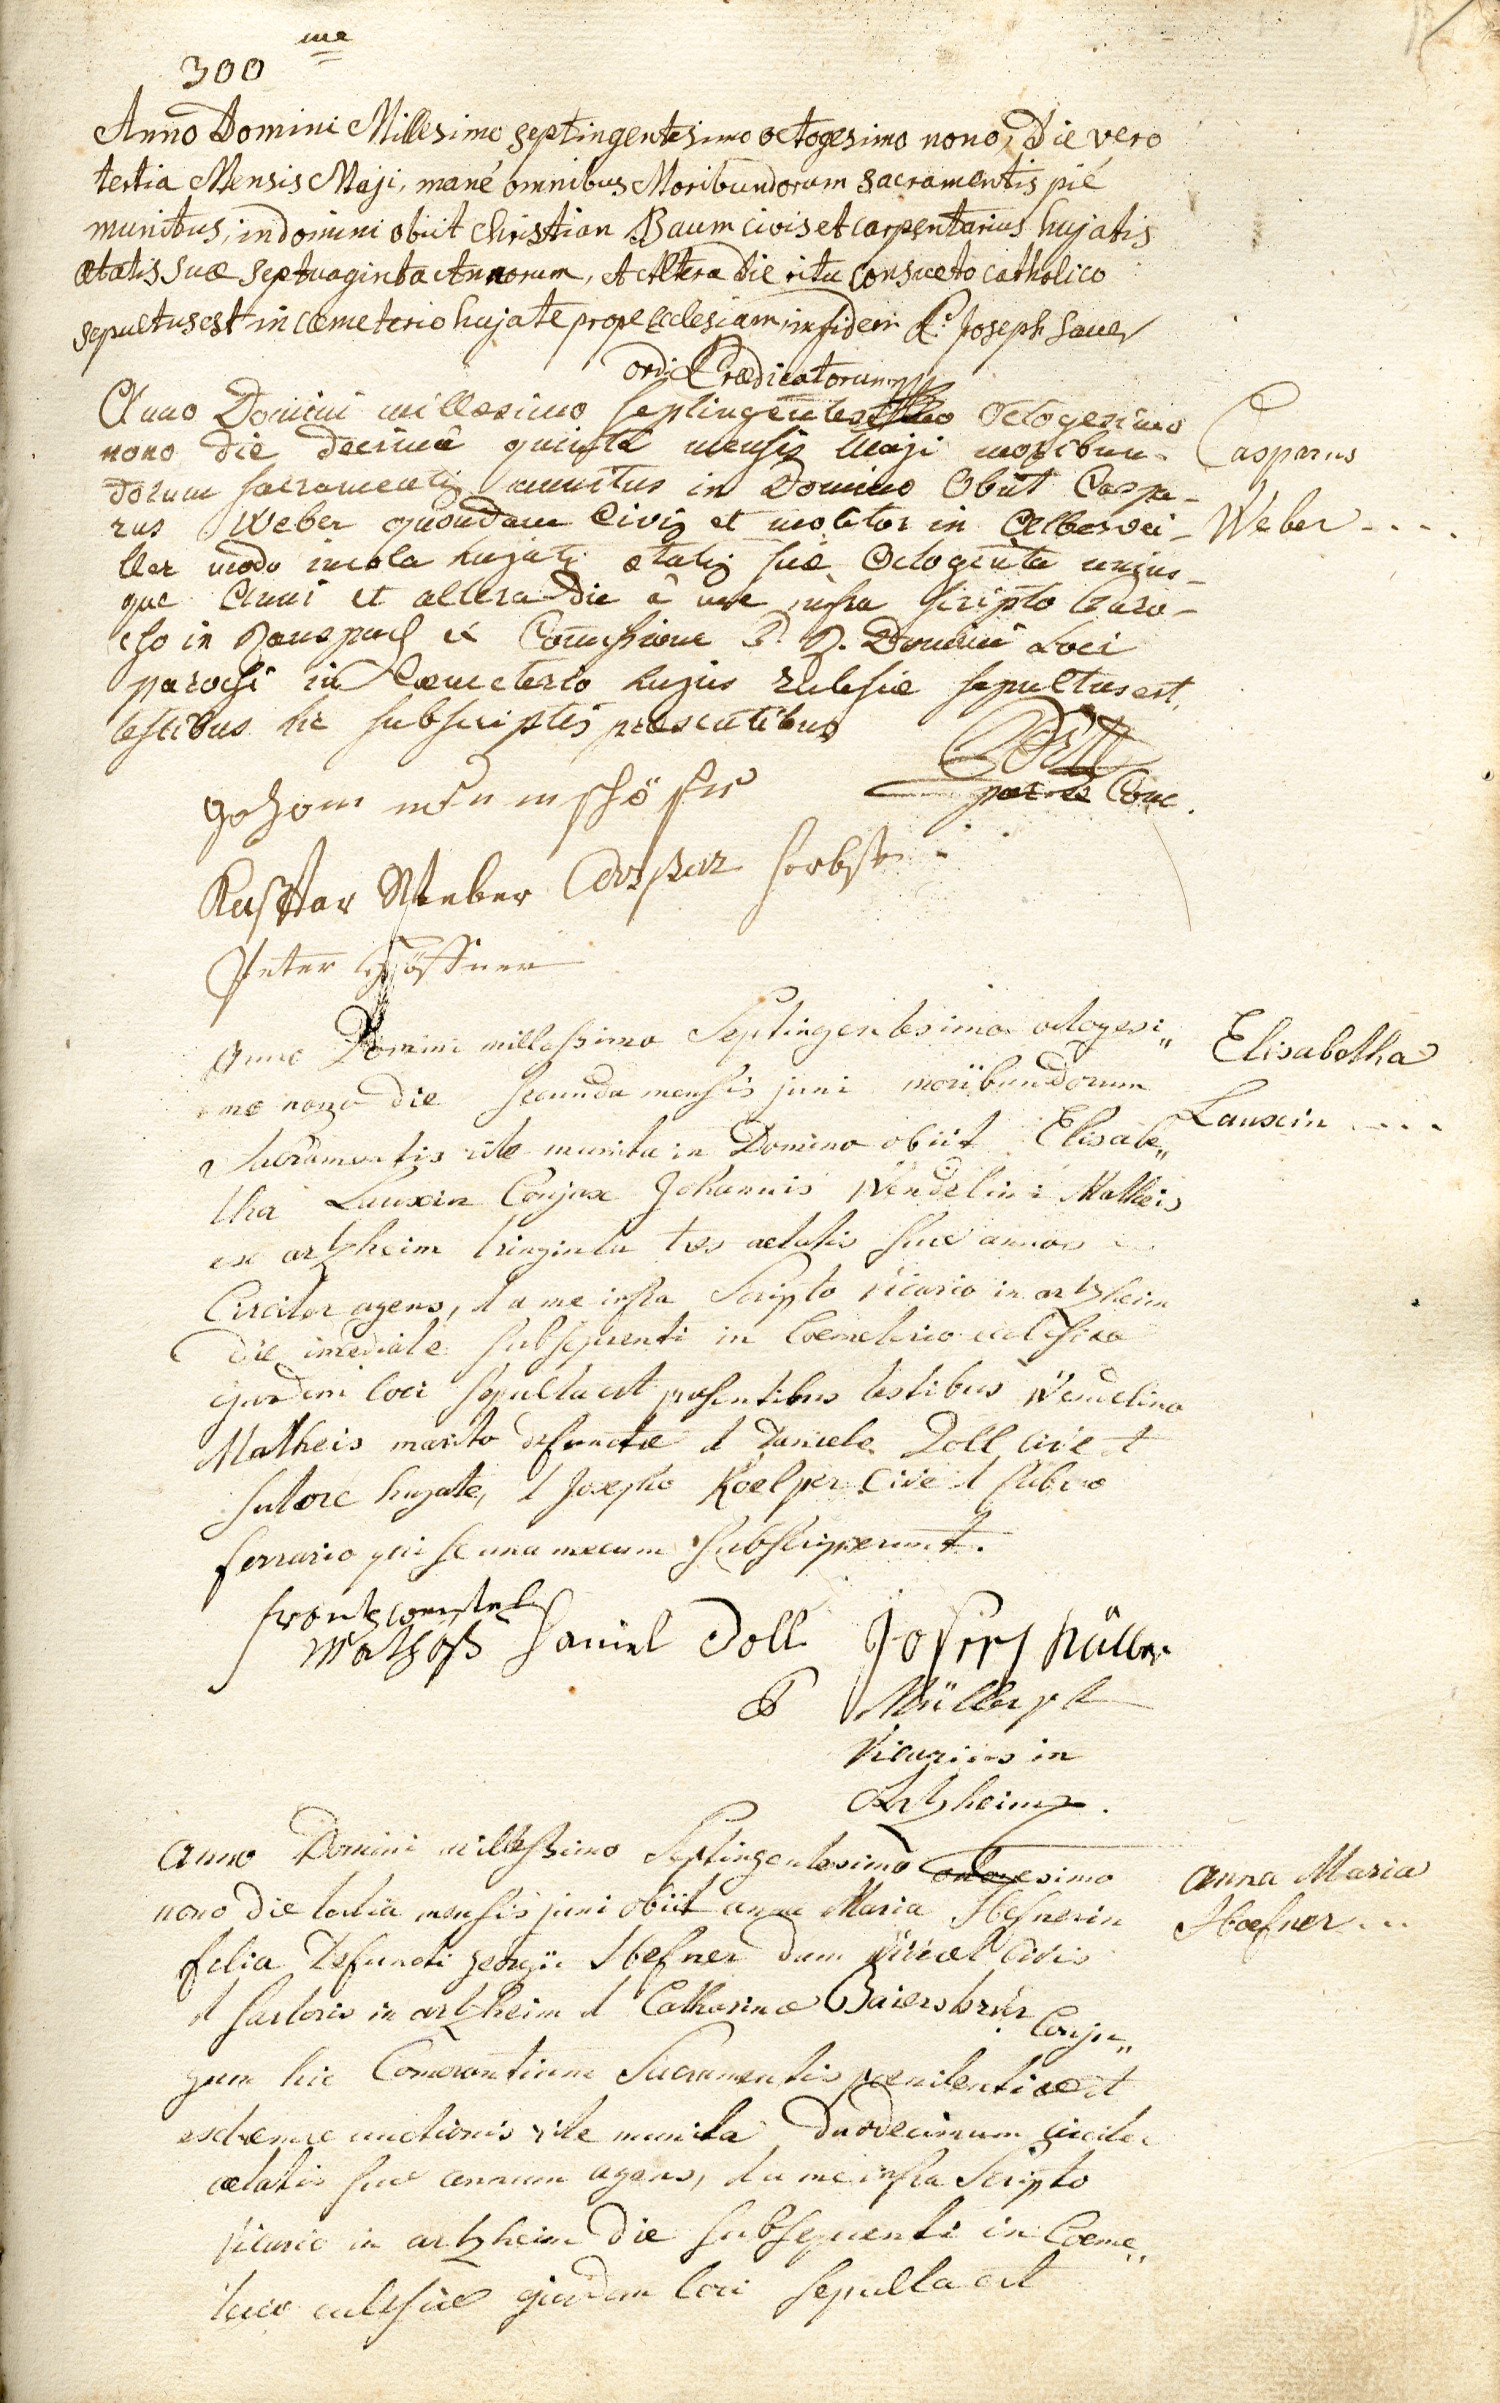 300 me
Anno Domini Millesimo septingentesimo octogesimo nono, Die vero
tertia Mensis Maji, mané omnibus Moribundorum sacramentis pié
munitus, in domini obiit Christian Baum civis et carpentarius hujatis
ætatis suæ septuaginta Annorum, et Altera die ritu consueto catholico
sepultus est in cœmeterio hujate prope Ecclesiam, in fidem P. Joseph Sauer
ord: Prædicatorum
Anno Domini millesimo septingentesimo octogesimo
nono die decimâ quinta mensis Maji moribun-
dorum sacramentis munitus in Domino Obiit Caspa-
rus Weber quondam Civis et molitor in Albersvei-
ller modo incola hujatis ætatis suæ Octogenta unius-
que Anni et altera die â me infra scripto Paro-
cho in Ranspach ex Commissione D. Domini Loci
parochi in Cœmeterio hujus Eclesiæ sepultus est,
testibus hic subscriptis præsentibus
Casparus
Weber - - -
Kasppar Weber Casspar
Peter Höffner
Anno Domini millessimo Septingentesimo octogesi„
mo nono die secunda mensis juni moribundorum
Sacramentis rite munita in Domino obiit Elisabe„
tha Lauxin Conjux Johannis Wendelini Matheis
ex artzheim triginta tres aetatis suæ annos
Circiter agens, et a me infra Scripto vicario in artzheim
die imediate subsequenti in Coemeterio ecclesiæ
ejusdem loci sepulta est præsentibus testibus Wendelino
Matheis marito defunctæ et Daniele Doll cive et
sutore hujate, et Josepho Koelper cive et fabro
ferrario qui se una mecum subscripserunt.
Elisabetha
Lauxin - - - -
Daniel Doll Joseph
Müller
Vicarius in
Artzheim.
Anno Domini millessimo Septingentesimo octogesimo
nono die tertia mensis juni obiit anna Maria Hoefnerin
filia Defuncti georgii Hoefner dum vivæt civis
et sartoris in artzheim et Catharinæ Baiersdörfer Conju„
gum hic Comorantium Sacramentis pœnitentiæ et
extremæ unctionis rite munita duodecimum circiter
ætatis suæ annum agens, et a me infra Scripto
vicario in artzheim die subsequenti in Coeme„
terio eclesiæ ejusdem loci sepulta est
anna Maria
Hoefner - - -